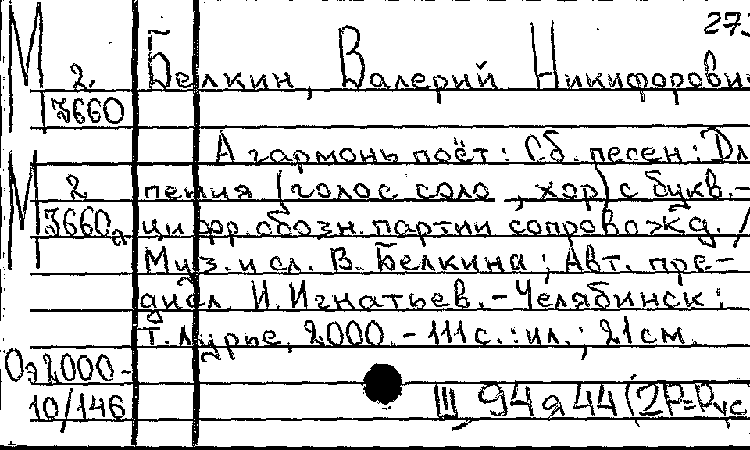 273
М 2 Белкин, Валерий Никифорови
3660
А гармонь поёт : Сб. песен : Дл
М 2 пения (голос соло , хор) с букв.-
3660а цифр. обозн. партии сопровожд. /
Муз. и сл. В. Белкина ; Авт. пре-
дисл. И. Игнатьев. - Челябинск :
Т. Лурье, 2000. - 111 с. : ил. ; 21 см.
Оэ2000-
10/146 III, 94 я 44 (2Р=Рус